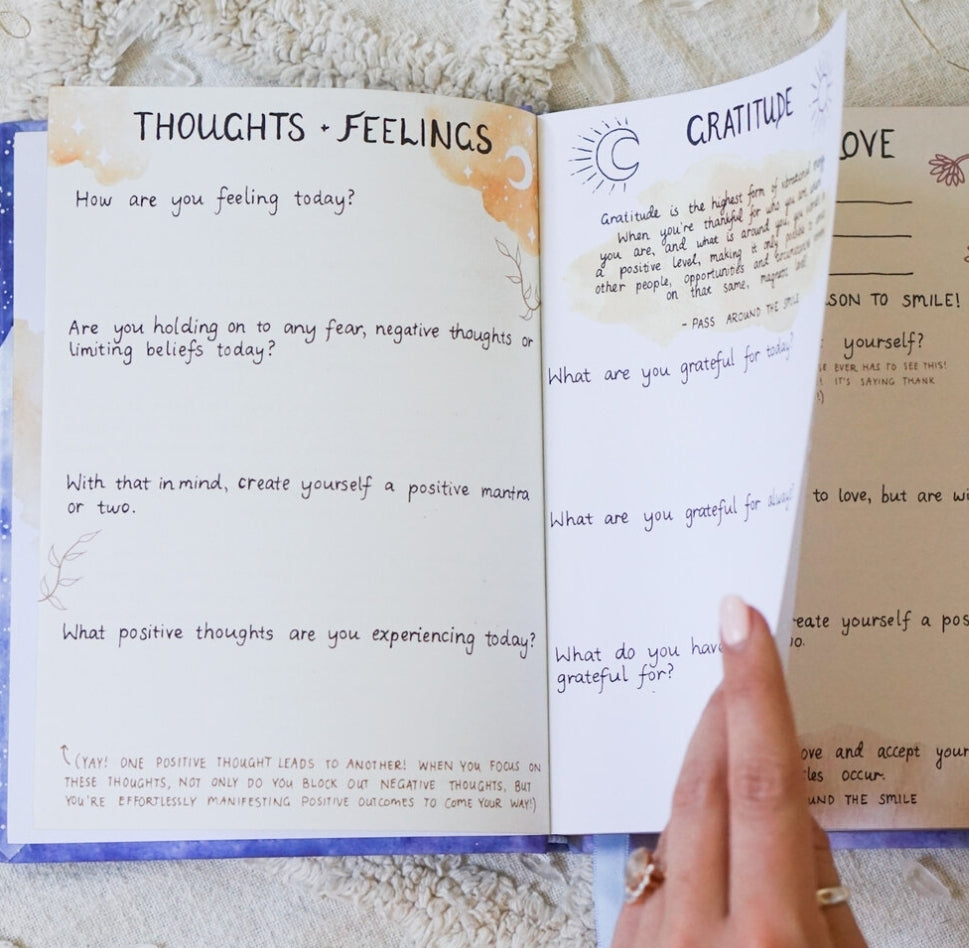 THOUGHTS + FEELINGS
How are you feeling today?
Are you holding on to any fear, negative thoughts or
limiting beliefs today?
With that in mind, create yourself a positive mantra
or two.
What positive thoughts are you experiencing today?
(YAY! ONE POSITIVE THOUGHT LEADS TO ANOTHER! WHEN YOU FOCUS ON
THESE THOUGHTS, NOT ONLY DO YOU BLOCK OUT NEGATIVE THOUGHTS, BUT
YOU'RE EFFORTLESSLY MANIFESTING POSITIVE OUTCOMES TO COME YOUR WAY!)
GRATITUDE
Gratitude is the highest form of vibrational
When you're thankful for who you are, where
you are, and what is around you, you
a positive level, making it only possible
other people, opportunities and circumstances
on that same, magnetic level.
- PASS AROUND THE SMILE
What are you grateful for today?
What are you grateful for always?
What do you have
grateful for?
OVE
SON TO SMILE!
yourself?
E EVER HAS TO SEE THIS!
! IT'S SAYING THANK
!)
to love, but are wi
reate yourself a pos
wo.
ove and accept your
les occur.
UND THE SMILE